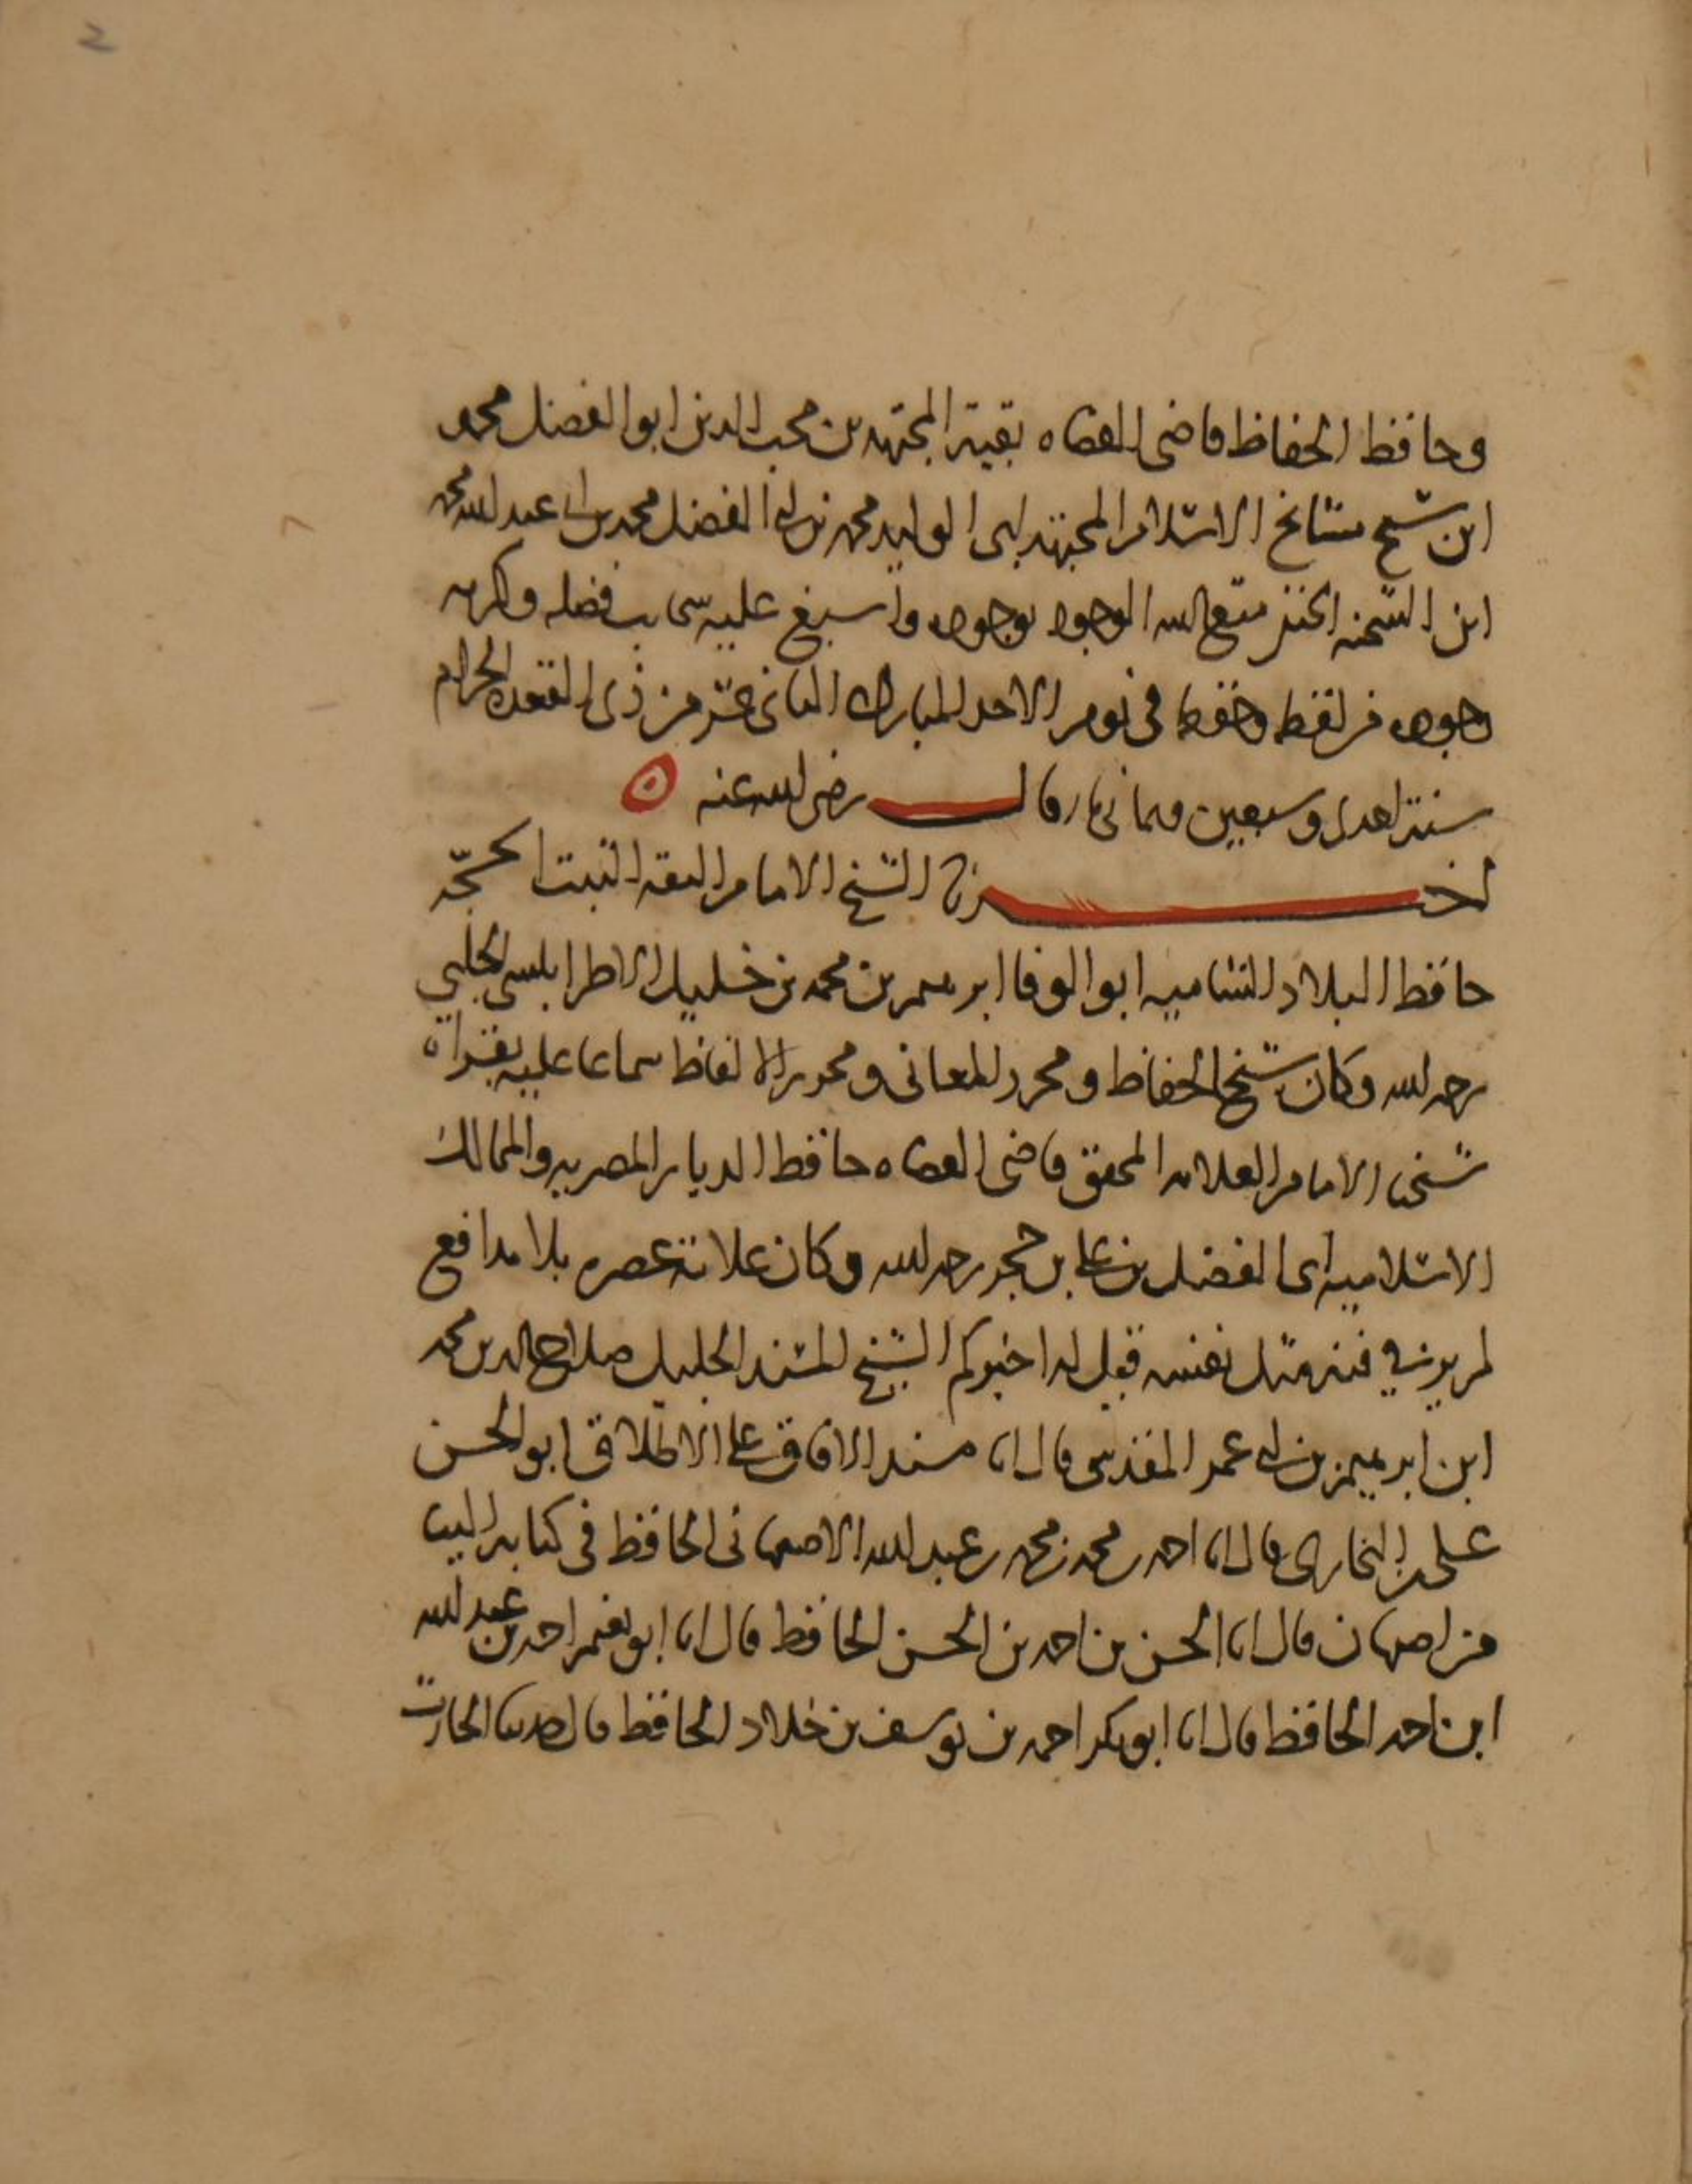 2
وحافظ الحفاظ قاضى القضاه بقية المجتهدين محب الدين ابو الفضل محمد
ابن شيخ مشايخ الاسلام المجتهد ابى الوليد محمد بن ابى الفضل محمد بن ابى عبد الله محمد
ابن الشحنه متع الله الوجود بوجوده واسبغ عليه سحايب فضله وكرمه
وجوده من لفظه وحفظه فى يوم الاحد المبارك الثانى عشر من ذى القعده الحرام
سنة احدى وسبعين وثمانى قال رضى الله عنه
اخبرنا الشيخ الامام الثقه الثبت الحجّه
حافظ البلاد الشاميه ابو الوفا ابرهيم بن محمد بن خليل الاطرابلسى الحلبي
رحمه الله وكان شيخ الحفاظ ومحرر المعانى ومحرر الالفاظ سماعا عليه بقراة
شيخنا الامام العلامه المحقق قاضى القضاه حافظ الديار المصريه والممالك
الاسلاميه ابى الفضل بن على بن حجر رحمه الله وكان علامة عصره بلا مدافع
لم ير في فنه مثل نفسه قيل له اخبركم الشيخ المسند الجليل صلاح الدين محمد
ابن ابرهيم بن ابى عمر المقدسى قال انا مسند الافاق على الاطلاق ابو الحسن
على بن البخارى قال انا احمد بن محمد بن محمد بن عبد الله الاصبهانى الحافظ فى كتابه الينا
من اصبهان قال انا الحسن بن احمد بن الحسن الحافظ قال انا ابو نعيم احمد بن عبد الله
ابن احمد الحافظ قال انا ابو بكر احمد بن يوسف بن خلاد الحافظ قال حدثنا الحارث